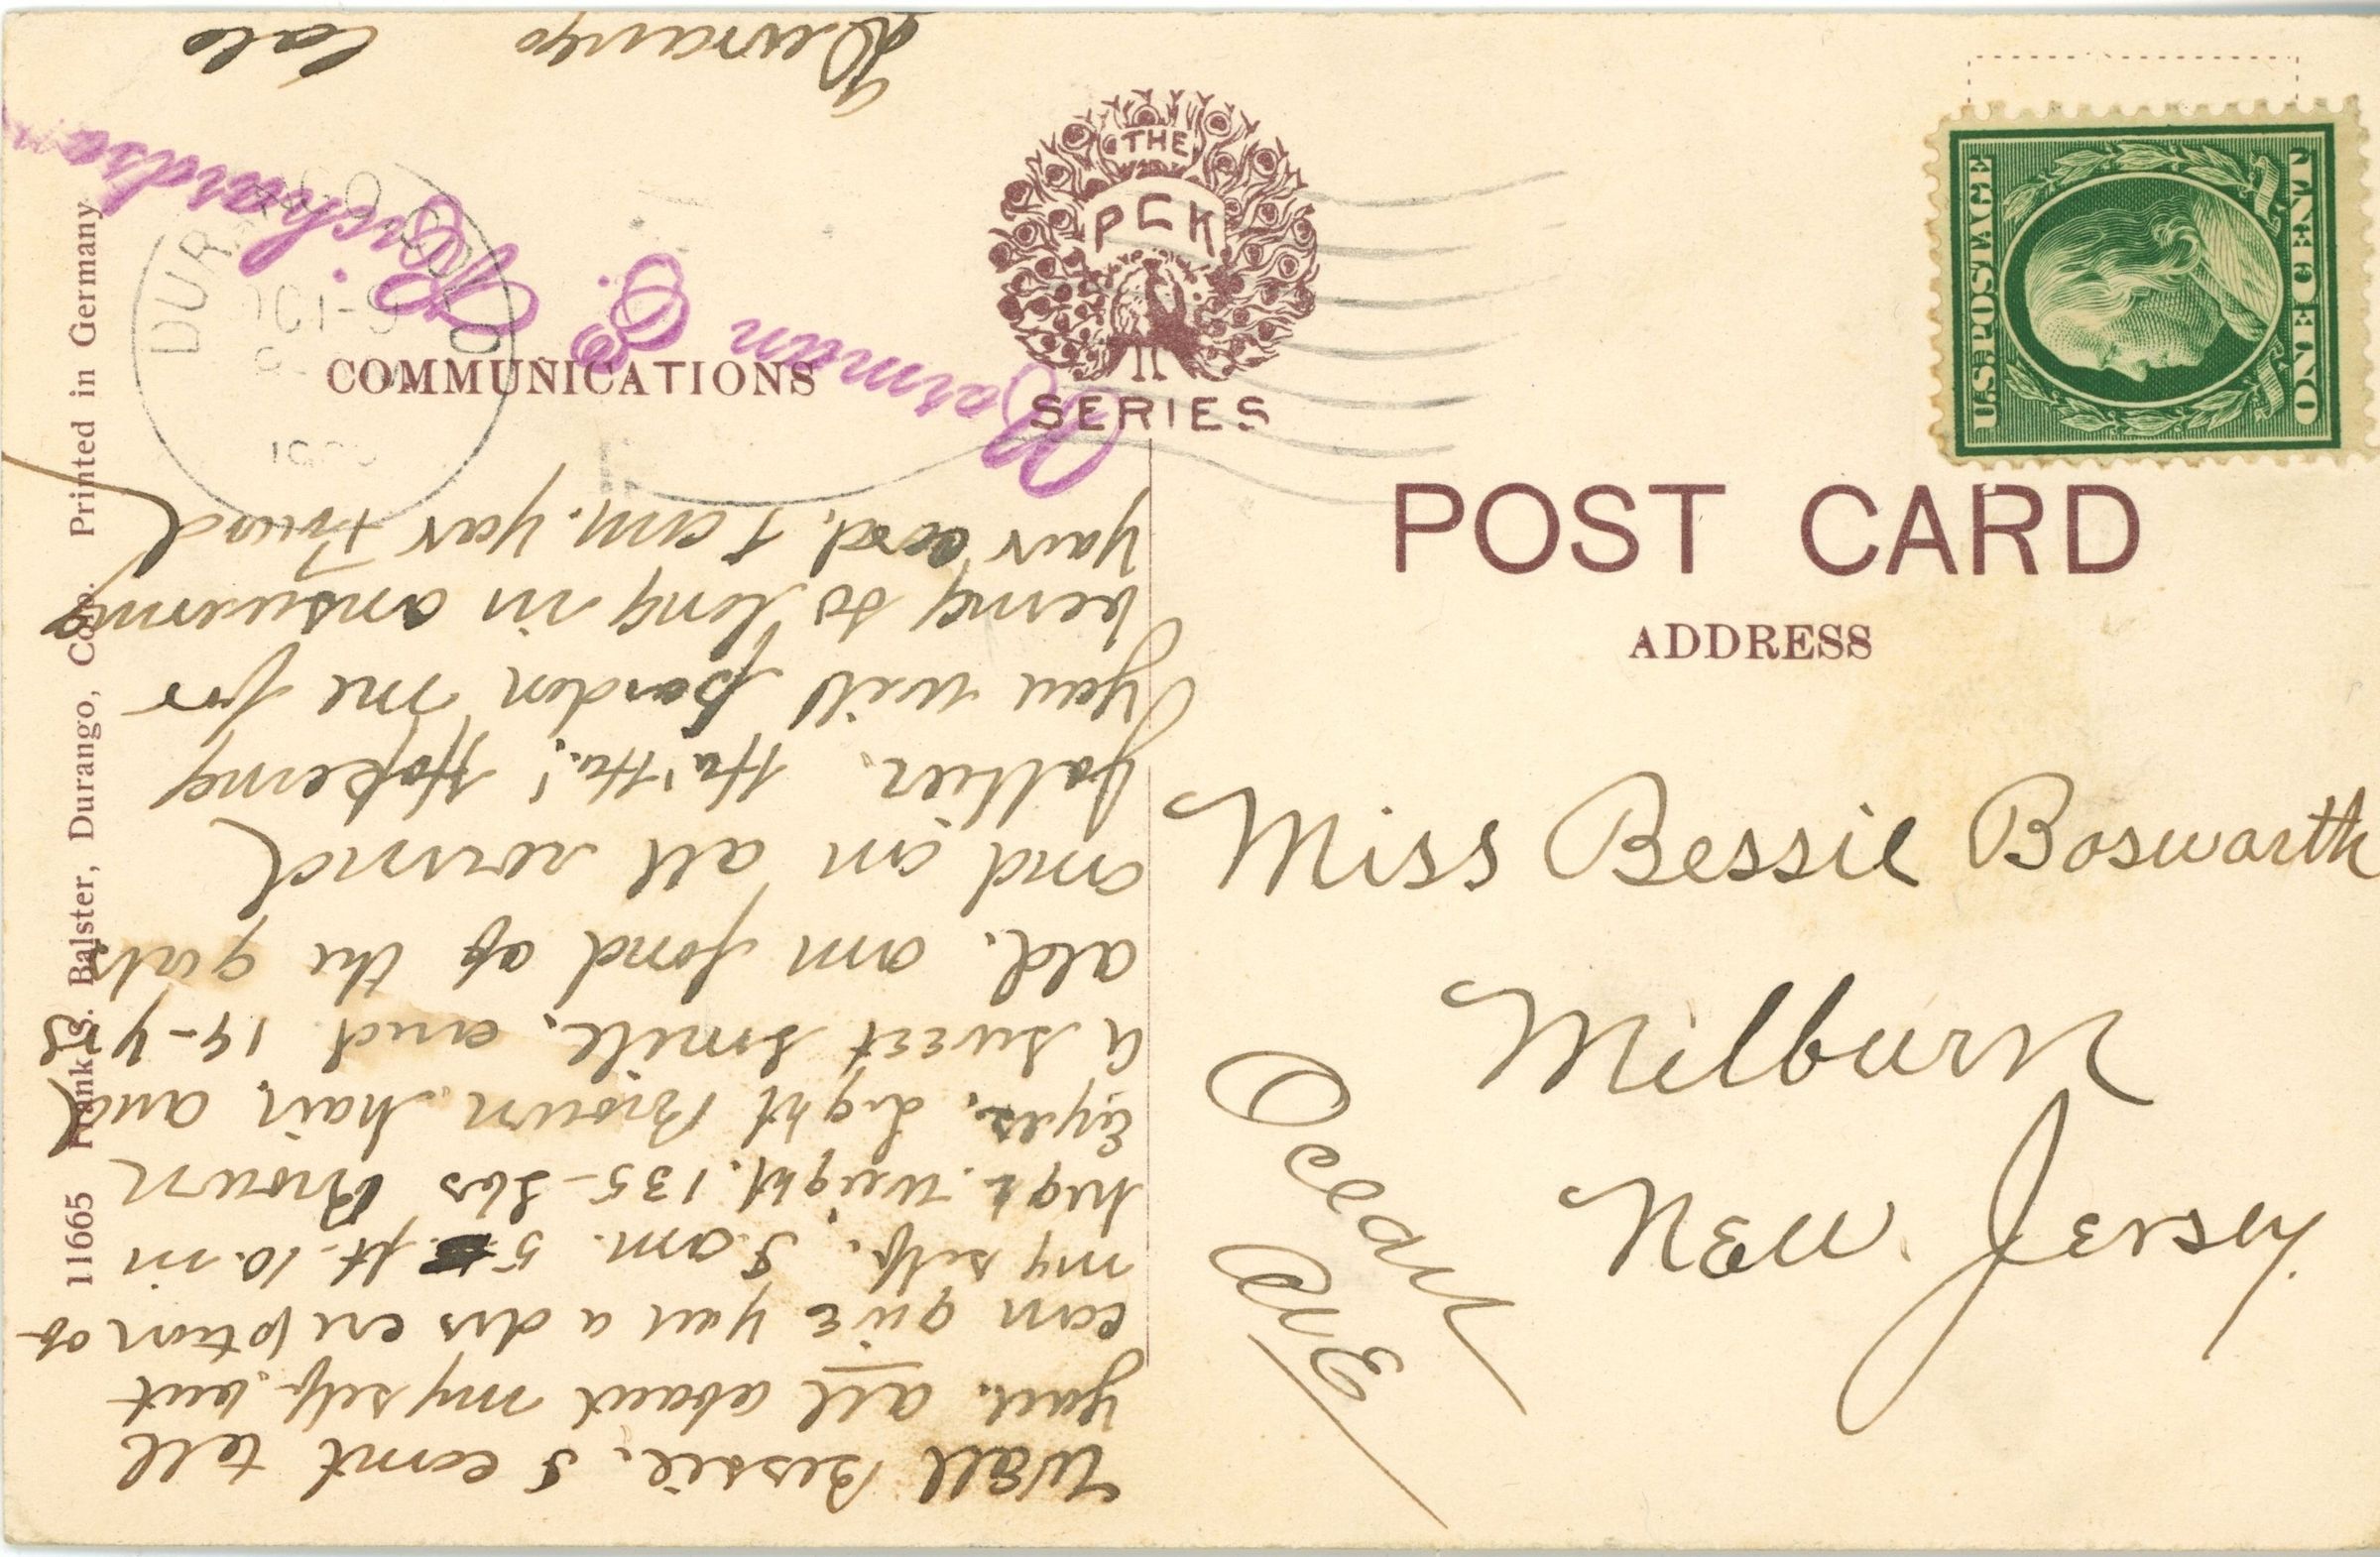 THE
PCK
SERIES
COMMUNICATIONS
POST CARD
ADDRESS
U.S. POSTAGE
ONE CENT
Miss Bessie Bosworth
Milburn
New Jersey.
Ocean
Ave
Well Bessie. I can't tell
you. all about my self. but
can give you a discription of
my self. I am. 5 ft. 10. in
weight. 135 - lbs Brown
Eyes. Light Brown hair. and
a sweet smile. and 19 - yrs
old. am fond of the girls
and im all round
Ha! Ha! Hopeing
you will pardon me for
being so long in answering
your card. I am. your Friend
Norman C. Richardson
Durango Colo
DURANGO
OCT-9
11665 Frank S. Balster, Durango, Colo. Printed in Germany